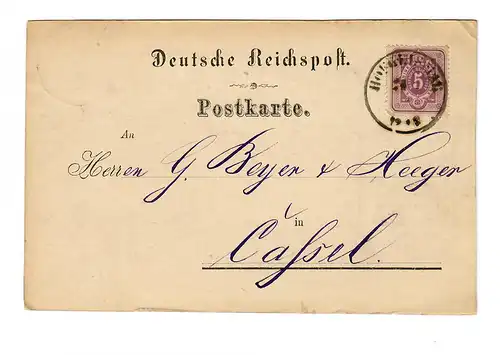 Deutsche Reichspost.
5
Postkarte.
An
Herren G. Beyer & Heeger
in
Cassel.